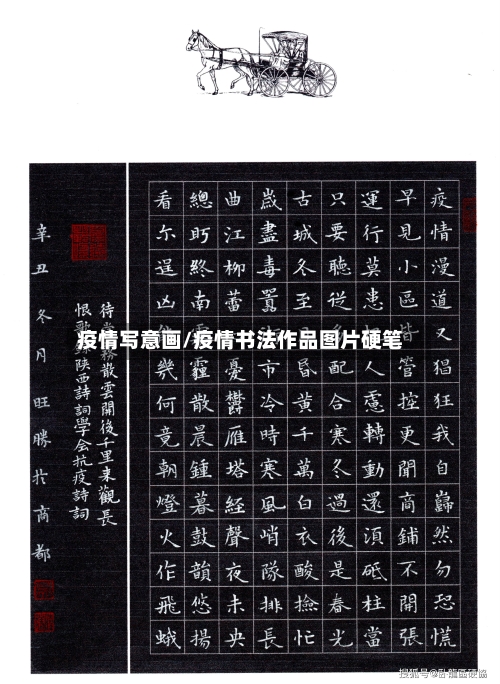 疫情写意画/疫情书法作品图片硬笔
疫情漫道又猖狂我自巋然勿恐慌
早見小區皆管控更聞商鋪不開張
運行莫患人慮轉動還須砥柱當
只要聽從配合寒冬過後是春光
古城冬至昏黃千萬白衣酸撿忙
歲盡毒囂市冷時寒風哨隊排長
曲江柳蕾憂鬱雁塔經聲夜未央
總盼終南霾散晨鐘暮鼓韻悠揚
看尔逞凶幾何竟朝燈火作飛蛾
待霧散雲開後千里來觀長
恨歌錄陝西詩詞學会抗疫詩詞
辛丑冬月旺勝於商都
搜狐号@卧龍區硬協